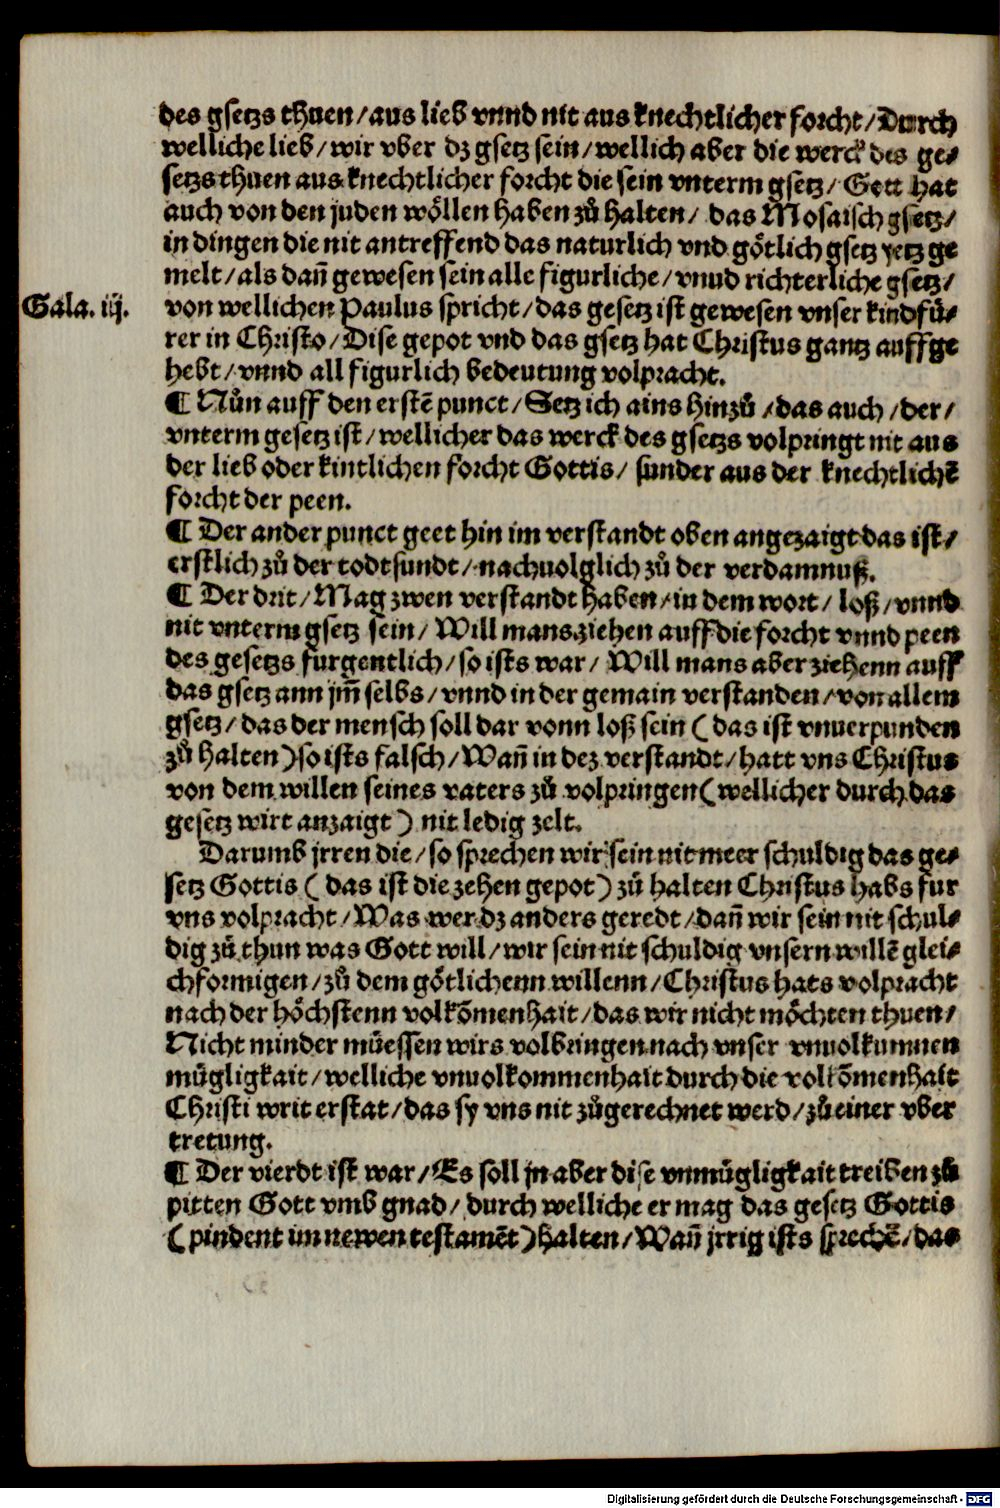 des gsetzs thuen/aus lieb vnnd nit aus knechtlicher forcht/Durch
welliche lieb/wir vber dz gsetz sein/wellich aber die werck des ge⸗
setzs thuen aus knechtlicher forcht die sein vnterm gsetz/Gott hat
auch von den juden wöllen haben zů halten/ das Mosaisch gsetz/
in dingen die nit antreffend das naturlich vnd götlich gsetz yetz ge
melt/als dan̄ gewesen sein alle figurliche/vnud richterliche gsetz/
Gala. iij.
von wellichen Paulus spricht/das gesetz ist gewesen vnser kindfü⸗
rer in Christo/Dise gepot vnd das gsetz hat Christus gantz auffge
hebt/vnnd all figurlich bedeutung volpracht.
¶ Nůn auff den erstē punct/Setz ich ains hinzů/das auch/der/
vnterm gesetz ist/wellicher das werck des gsetzs volpringt nit aus
der lieb oder kintlichen forcht Gottis/ sunder aus der knechtlichē
forcht der peen.
¶ Der ander punct geet hin im verstandt oben angezaigt das ist/
erstlich zů der todtsundt/nachuolglich zů der verdamnuß.
¶ Der drit/Mag zwen verstandt haben/in dem wort/ loß/vnnd
nit vnterm gsetz sein/Will mans ziehen auff die forcht vnnd peen
des gesetzs furgentlich/so ists war/ Will mans aber ziehenn auff
das gsetz ann jm̄ selbs/vnnd in der gemain verstanden/von allem
gsetz/das der mensch soll dar vonn loß sein (das ist vnuerpunden
zů halten)so ists falsch/Wan̄ in dez verstandt/hatt vns Christus
von dem willen seines vaters zů volpringen(wellicher durch das
gesetz wirt anzaigt) nit ledig zelt.
Darumb jrren die/so sprechen wir sein nit meer schuldig das ge⸗
setz Gottis (das ist die zehen gepot) zů halten Christus habs fur
vns volpracht/Was wer dz anders geredt/dan̄ wir sein nit schul⸗
dig zů thun was Gott will/wir sein nit schuldig vnsern willē glei⸗
chformigen/zů dem götlichenn willenn/Christus hats volpracht
nach der höchstenn volkōmenhait/das wir nicht möchten thuen/
Nicht minder müessen wirs volbringen nach vnser vnuolkummen
mügligkait/welliche vnuolkommenhait durch die volkōmenhait
Christi wirt erstat/das sy vns nit zůgerechnet werd/zů einer vber
tretung.
¶ Der vierdt ist war/Es soll jn aber dise vnmügligkait treiben zů
pitten Gott vmb gnad/durch welliche er mag das gesetz Gottis
(pindent im newen testamēt)halten/Wan̄ jrrig ists sprechē/das
Digitalisierung gefördert durch die Deutsche Forschungsgemeinschaft - DFG